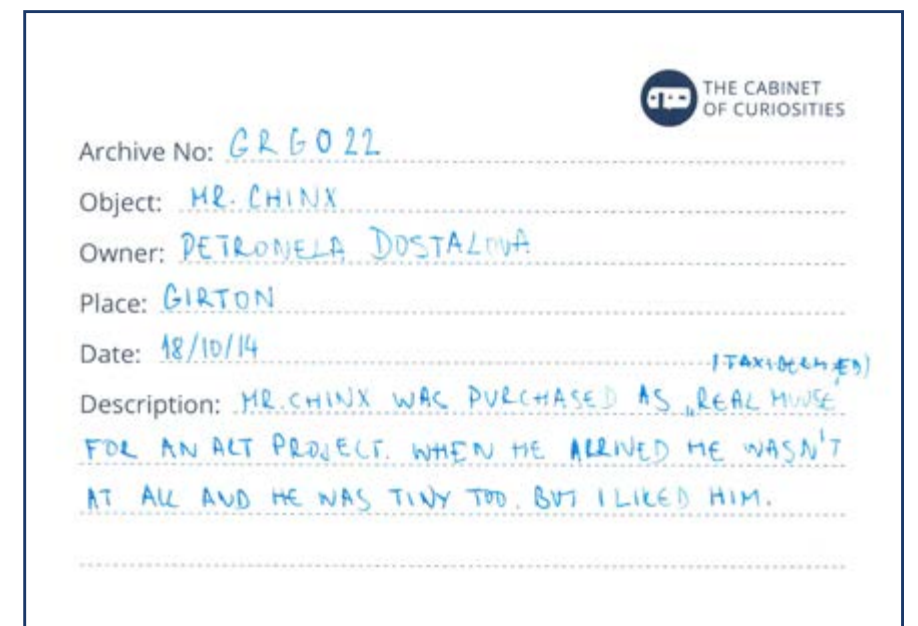 THE CABINET
OF CURIOSITIES
Archive No: GRG022
Object: MR. CHINX
Owner: PETRONELA DOSTALOVA
Place: GIRTON
Date: 18/10/14
(TAXIDERMIED)
Description: MR. CHINX WAS PURCHASED AS „REAL MOUSE"
FOR AN ART PROJECT. WHEN HE ARRIVED HE WASN'T
AT ALL AND HE WAS TINY TOO. BUT I LIKED HIM.